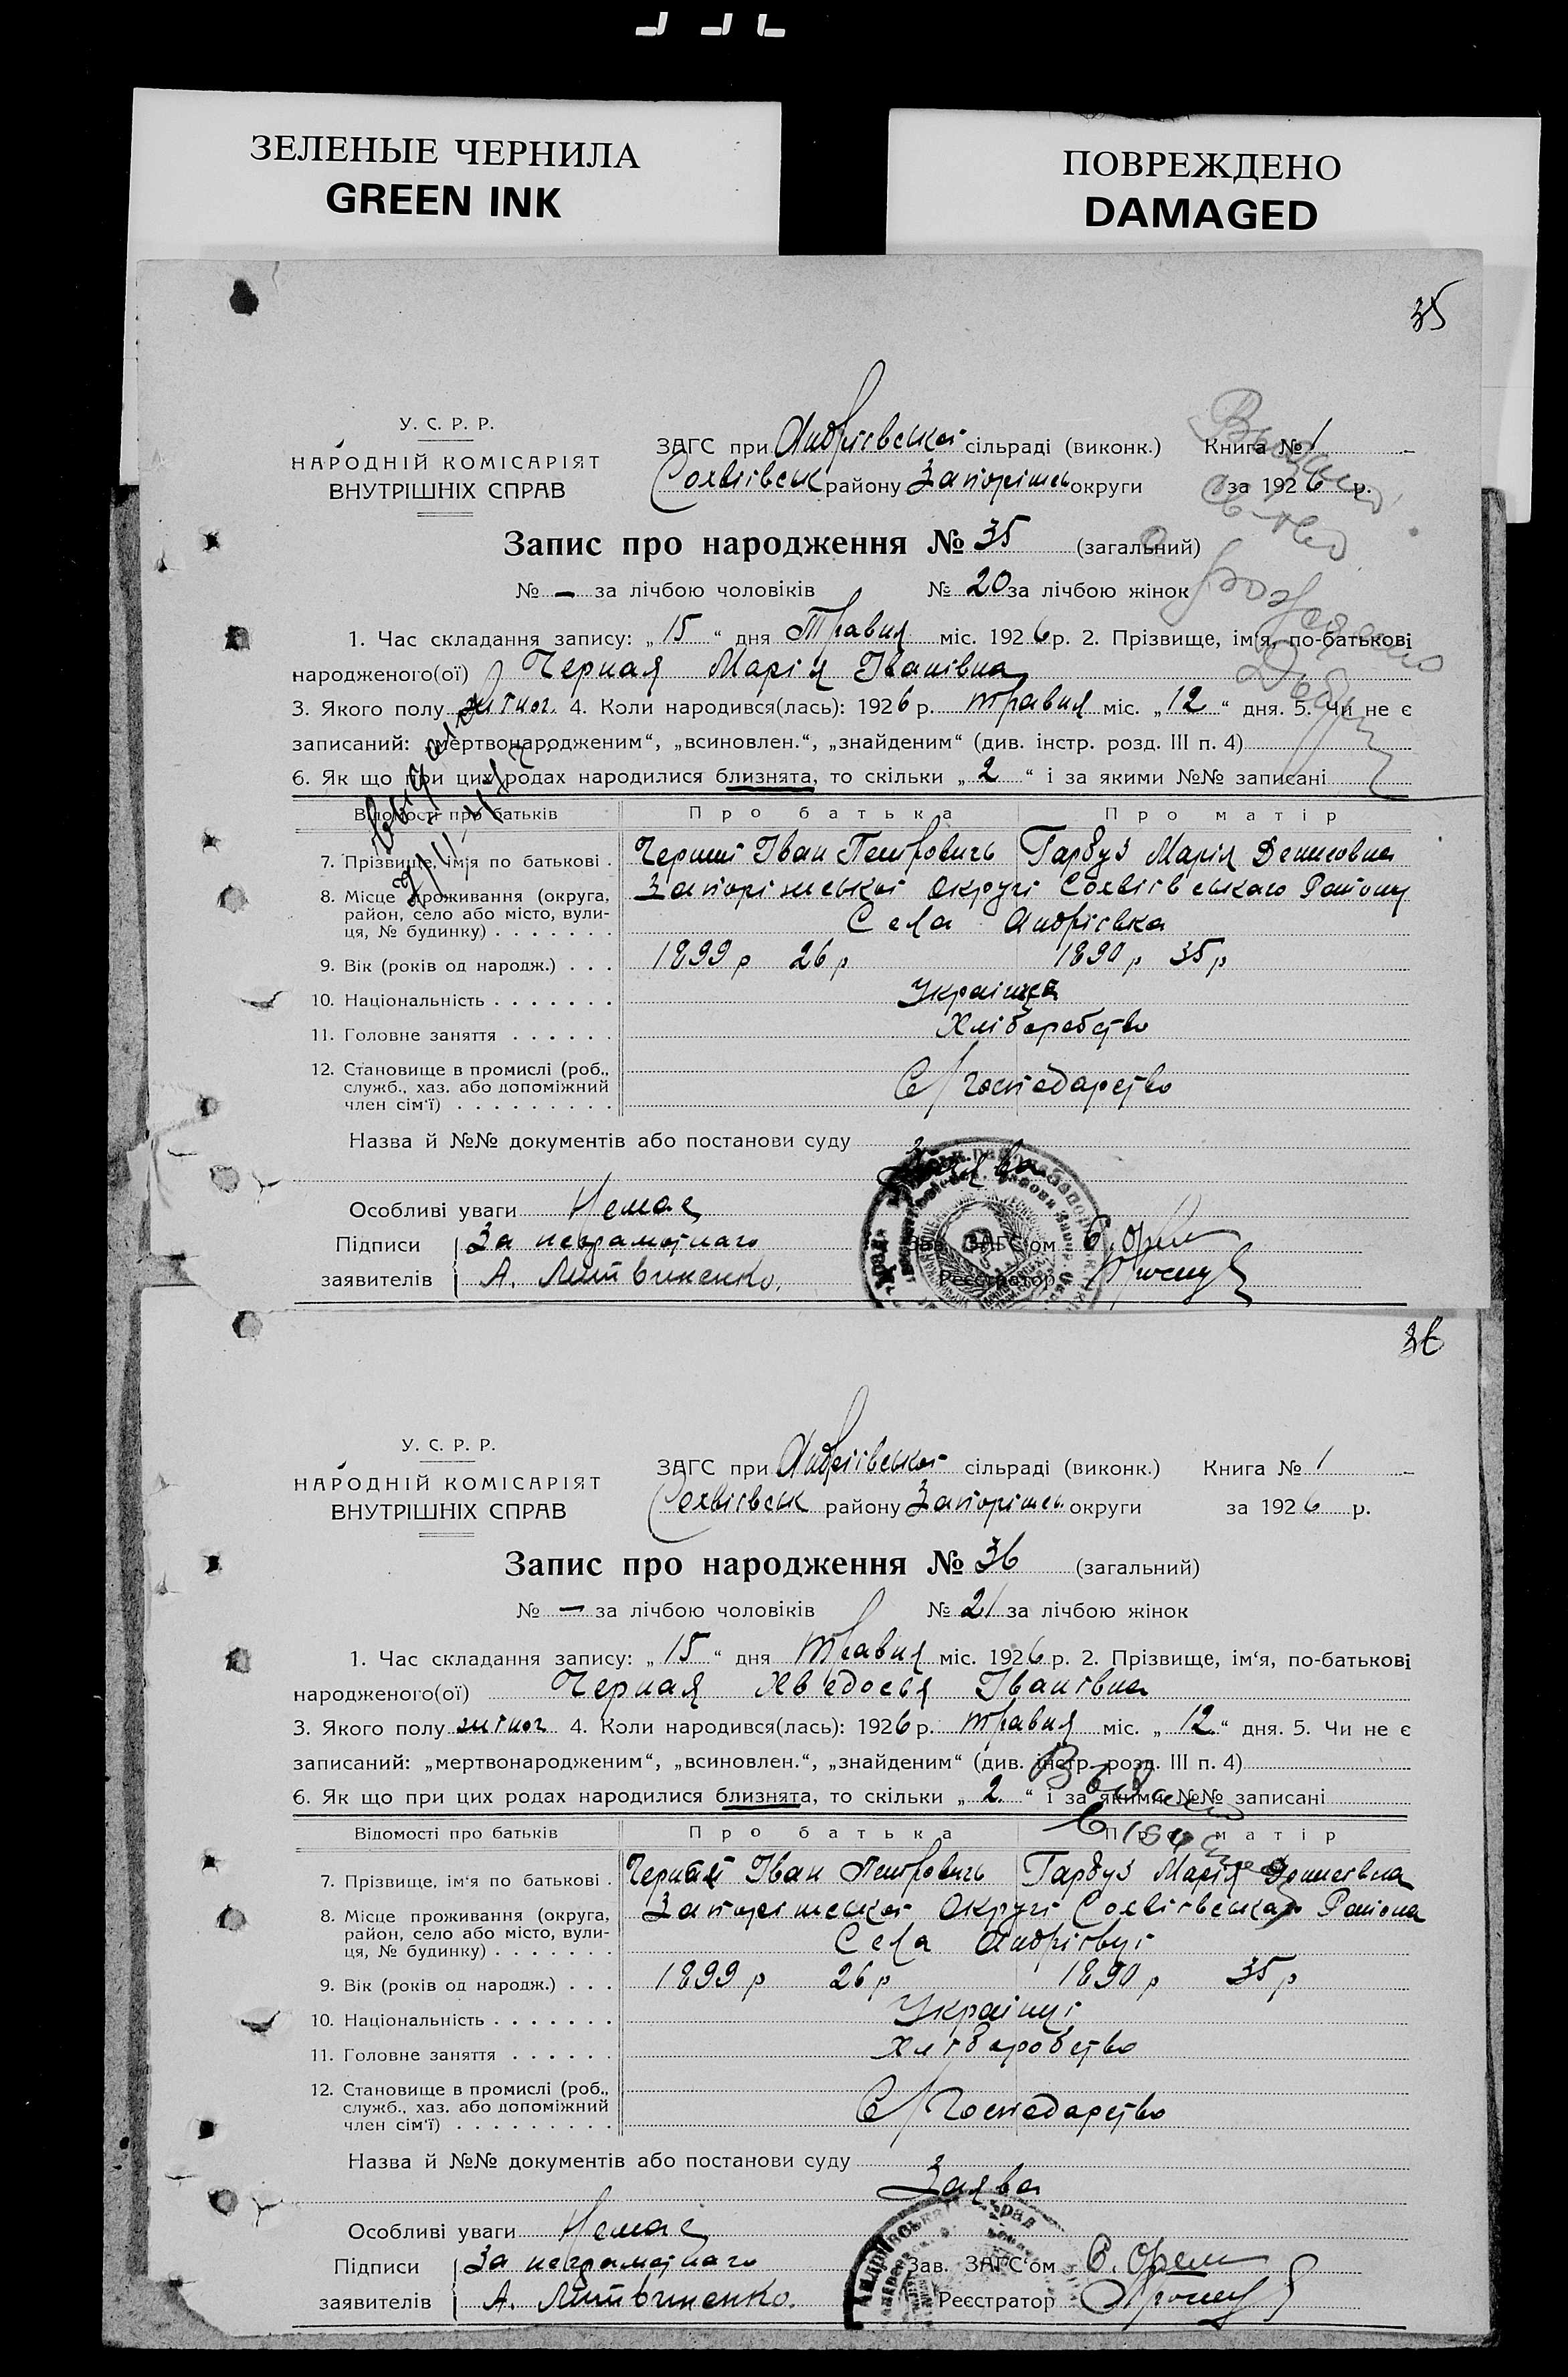 ЗЕЛЕНЫЕ ЧЕРНИЛА
GREEN INK
ПОВРЕЖДЕНО
DAMAGED
35
У. С. Р. Р.
НАРОДНІЙ КОМІСАРІЯТ
ВНУТРІШНІХ СПРАВ
ЗАГС при Андріївськоі сільраді (виконк.) Книга № 1
Софіівськ району Запоріжськ округи за 1926 р.
Запис про народження № 35 (загальний)
№ — за лічбою чоловіків № 20 за лічбою жінок
1. Час складання запису: „ 15 “ дня Травня міс. 1926 р. 2. Прізвище, ім‘я, по-батькові
народженого(ої) Черная Марія Іванівна
3. Якого полу жіноч. 4. Коли народився(лась): 1926 р. травня міс. „ 12 “ дня. 5. Чи не є
записаний: „мертвонародженим“, „всиновлен.“, „знайденим“ (див. інстр. розд. III п. 4)
6. Як що при цих родах народилися близнята, то скільки „ 2 “ і за якими №№ записані
Відомості про батьків Про батька Про матір
7. Прізвище, ім‘я по батькові . Іван Петровичь Гарбуз Марія Денисовна
8. Місце проживання (округа, Запоріжськоі округі Софіівського Району
район, село або місто, вули-
ця, № будинку) . . . . . . . Села Андрієвка
9. Вік (років од народж.) . . . 1899 р 26 р 1890 р 35 р
10. Національність . . . . . . .
11. Головне заняття . . . . . . Хліборобство
12. Становище в промислі (роб.,
служб., хаз. або допоміжний С/господарство
член сім‘ї) . . . . . . . . .
Назва й №№ документів або постанови суду
Заява
Особливі уваги Немає
Підписи За неграмотного Зав. ЗАГС‘ом
заявителів А. Литвиненко. Реєстратор
36
У. С. Р. Р.
НАРОДНІЙ КОМІСАРІЯТ
ВНУТРІШНІХ СПРАВ
ЗАГС при Андріівськоі сільраді (виконк.) Книга № 1
Софіівськ району Запоріжськ округи за 1926 р.
Запис про народження № 36 (загальний)
№ — за лічбою чоловіків № 21 за лічбою жінок
1. Час складання запису: „ 15 “ дня травня міс. 1926 р. 2. Прізвище, ім‘я, по-батькові
народженого(ої) Черная Хведосья Іванівна
3. Якого полу жіноч 4. Коли народився(лась): 1926 р. травня міс. „ 12 “ дня. 5. Чи не є
записаний: „мертвонародженим“, „всиновлен.“, „знайденим“ (див. інстр. розд. III п. 4)
6. Як що при цих родах народилися близнята, то скільки „ 2 “ і за якими №№ записані
Відомості про батьків Про батька Про матір
7. Прізвище, ім‘я по батькові . Іван Петровичь Гарбуз Марія Денисівна
8. Місце проживання (округа, Запоріжськоі Округі Району
район, село або місто, вули-
ця, № будинку) . . . . . . . Села
9. Вік (років од народж.) . . . 1899 р 26 р 1890 р 35 р
10. Національність . . . . . . . Украінці
11. Головне заняття . . . . . . Хліборобство
12. Становище в промислі (роб.,
служб., хаз. або допоміжний С/Господарство
член сім‘ї) . . . . . . . . .
Назва й №№ документів або постанови суду
Заява
Особливі уваги Немає
Підписи За неграмотного Зав. ЗАГС‘ом
заявителів А. Литвиненко. Реєстратор